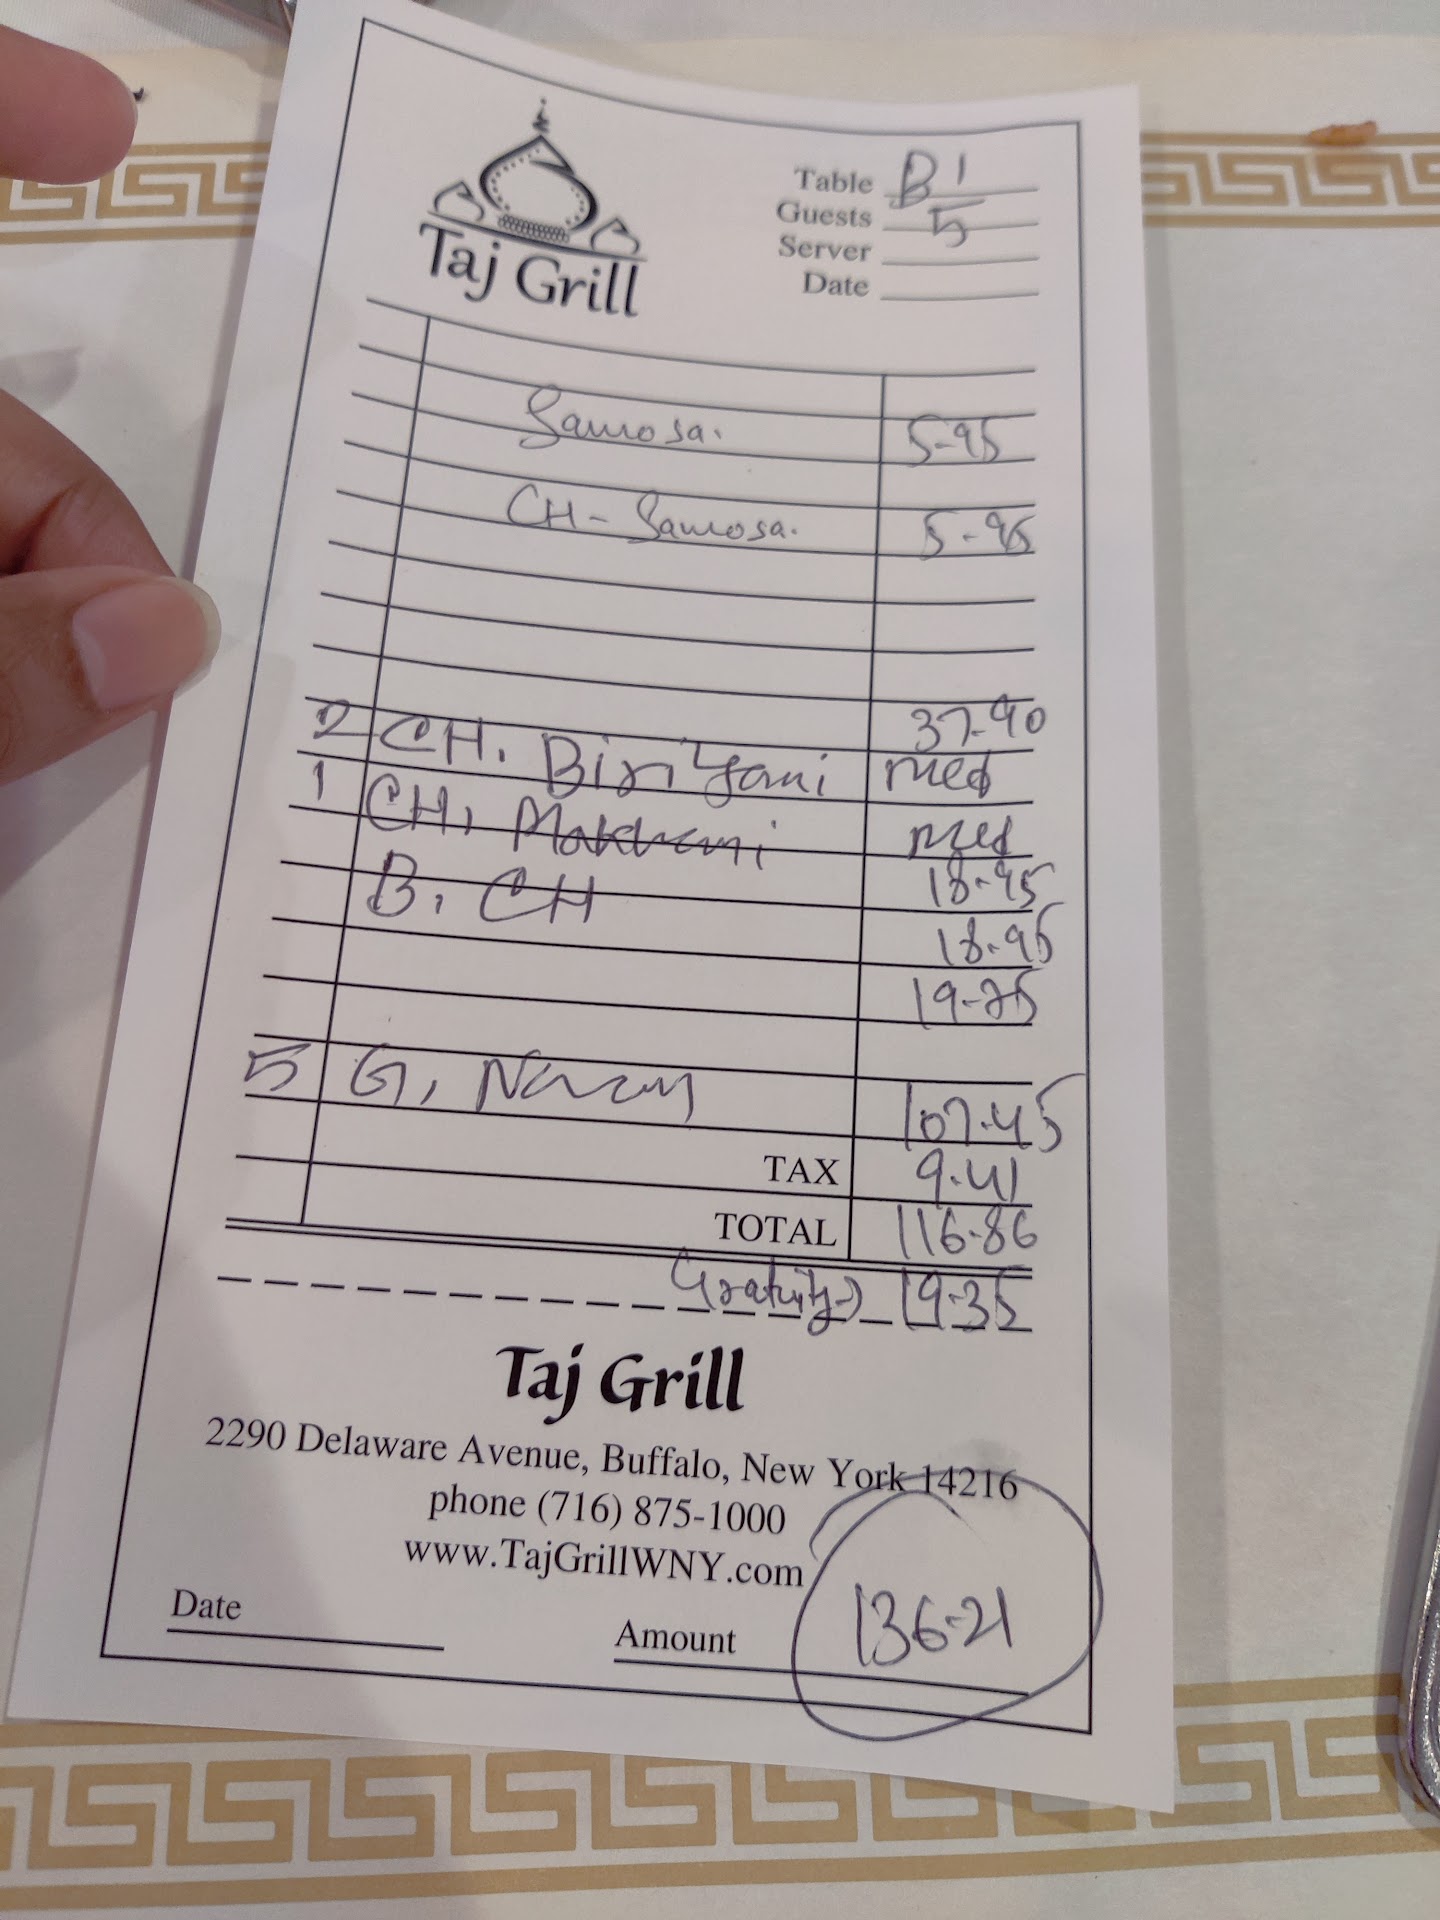 Taj Grill
Table B1
Guests 5
Server
Date
Samosa. 5-95
CH- Samosa. 5-95
37-90
2 CH. Biriyani med
1 CH, Makhani med
18-95
B, CH
18-95
19-75
5 G, Naan
107-45
TAX 9-41
TOTAL 116-86
Gratuity 19-35
Taj Grill
2290 Delaware Avenue, Buffalo, New York 14216
phone (716) 875-1000
www.TajGrillWNY.com
Date
Amount 136-21